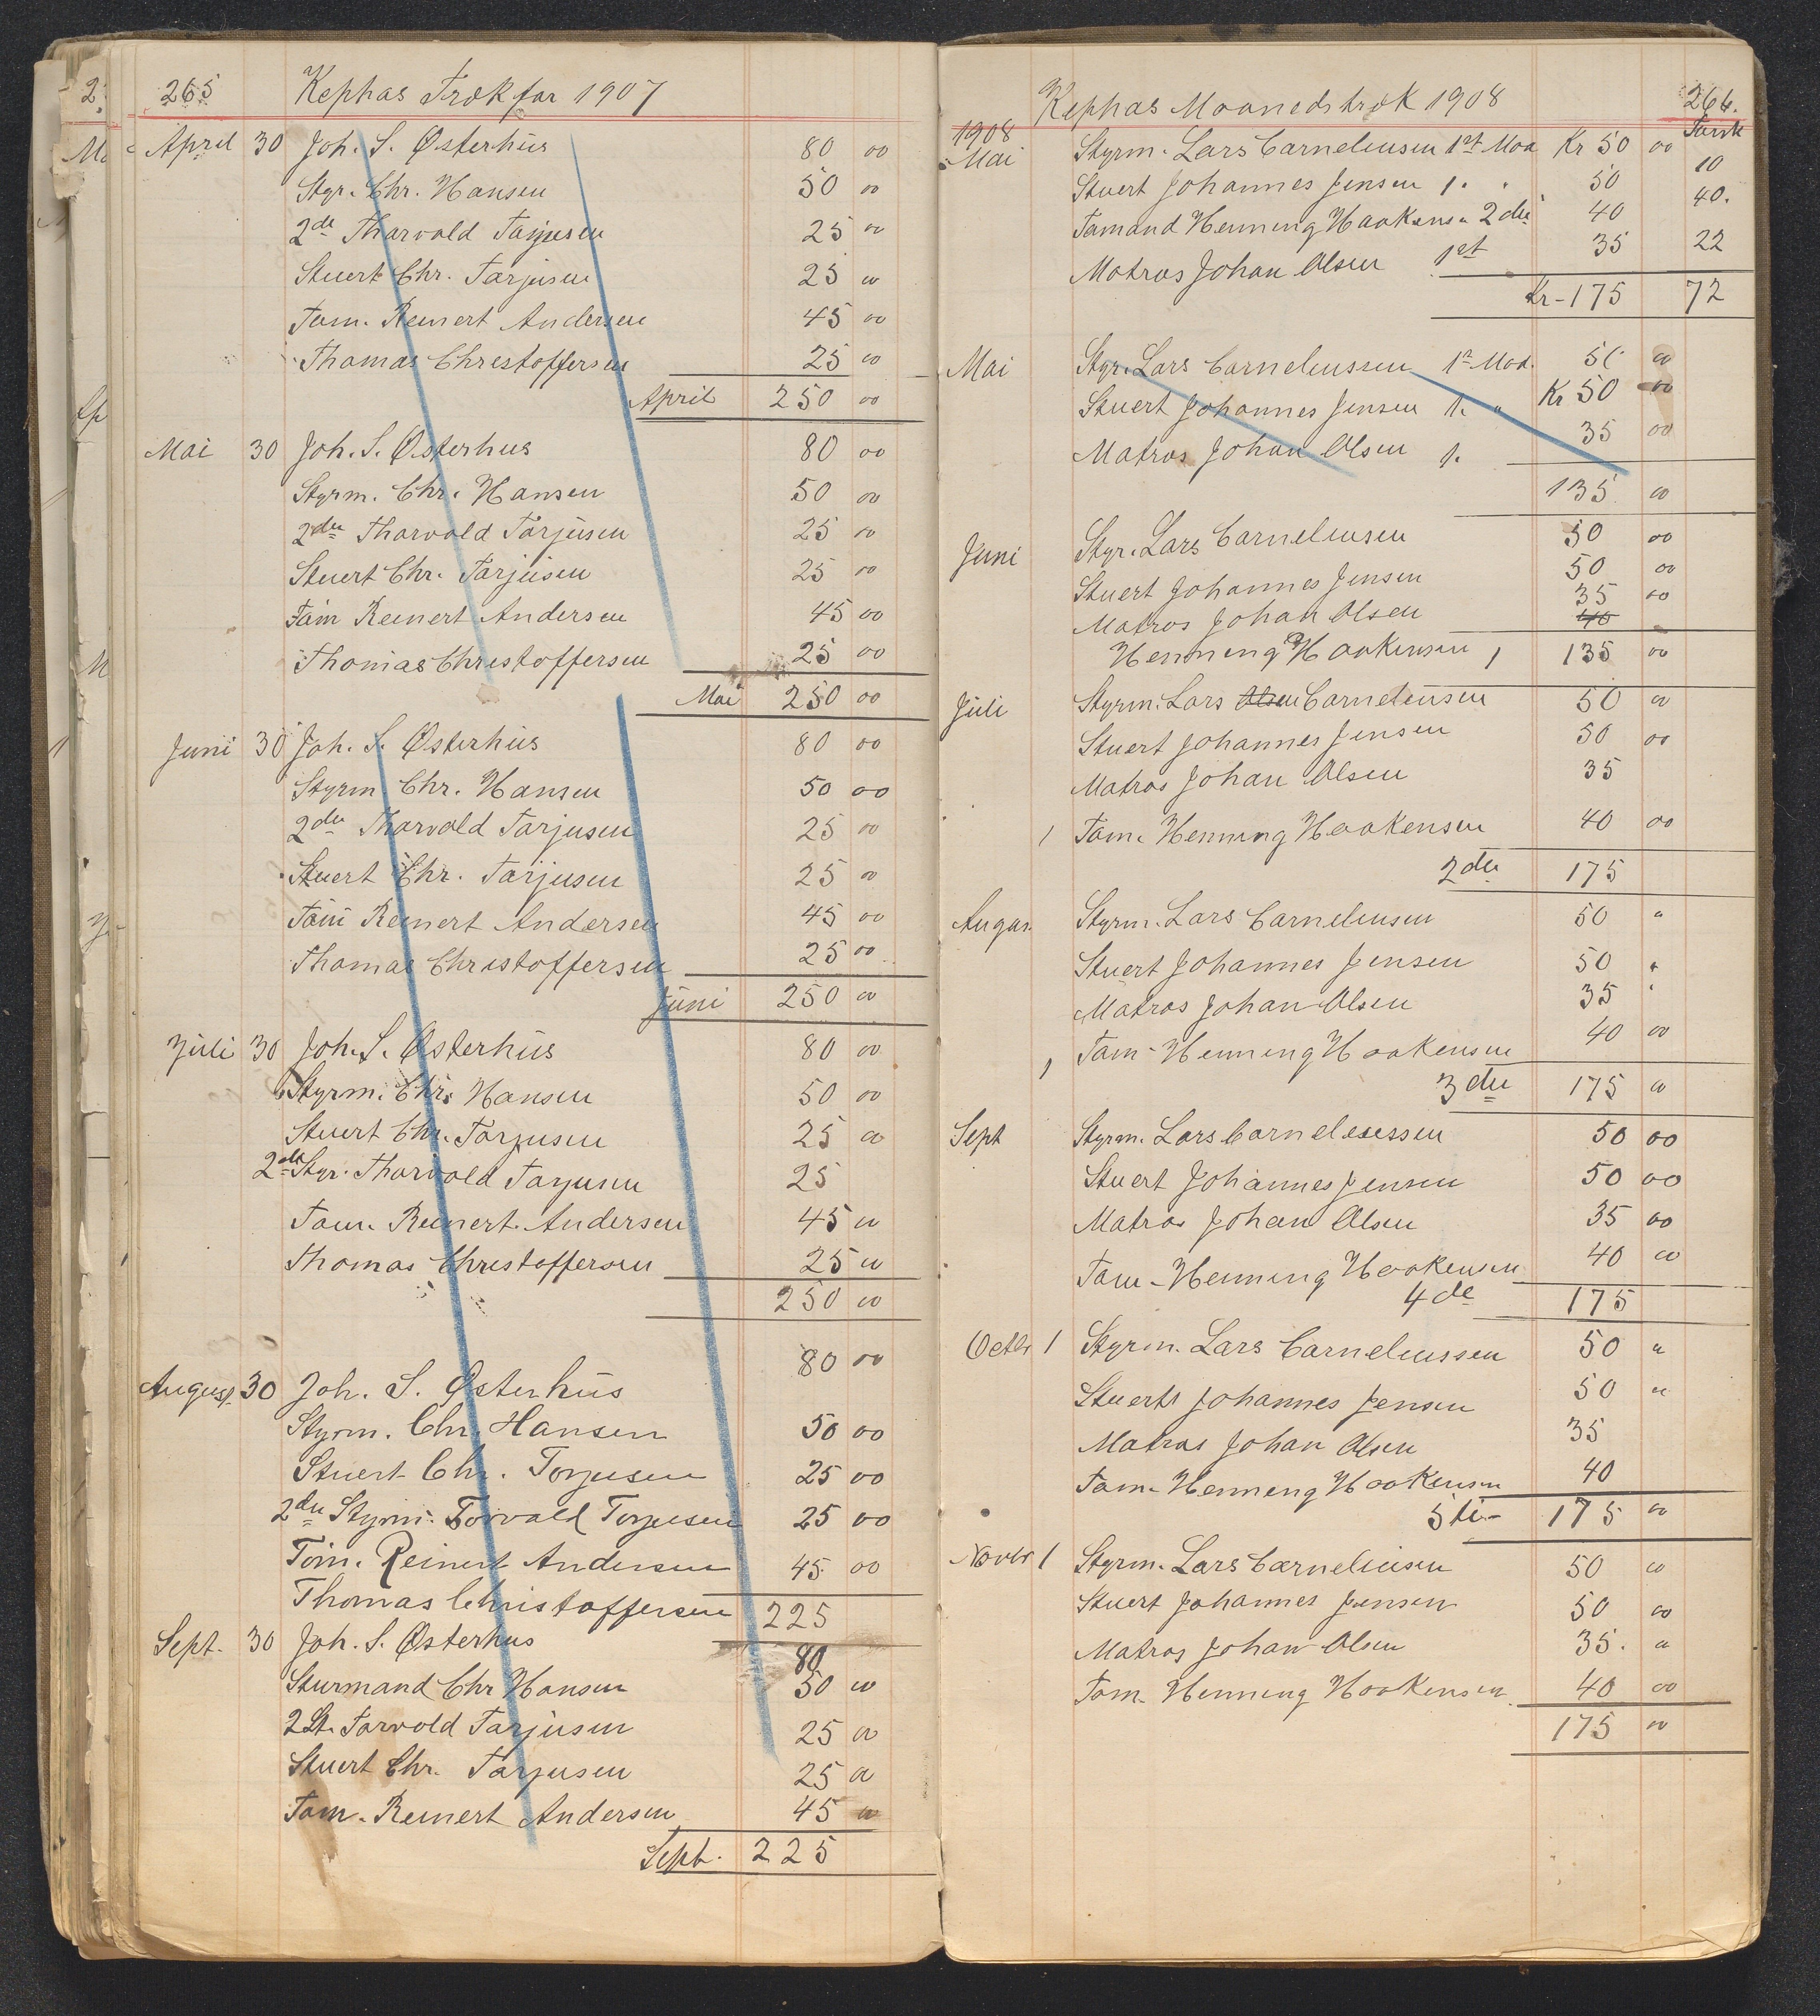 265 Kephas Træk for 1907
April 30 Joh. S. Østerhus 80 00
Styr. Chr. Hansen 50 00
2de Tharvald Tarjusen 25 00
Stuert Chr. Tarjusen 25 00
Tøm. Reinert Andersen 45 00
Thomas Christoffersen 25 00
April 250 00
Mai 30 Joh. S. Østerhus 80 00
Styrm. Chr. Hansen 50 00
2den Tharvald Tarjusen 25 00
Stuert Chr. Tarjusen 25 00
Tøm Reinert Andersen 45 00
Thomas Christoffersen 25 00
Mai 250 00
Juni 30 Joh. S. Østerhus 80 00
Styrm Chr. Hansen 50 00
2den Tharvald Tarjusen 25 00
Stuert Chr. Tarjusen 25 00
Tøm Reinert Andersen 45 00
Thomas Christoffersen 25 00
Juni 250 00
Juli 30 Joh. S. Østerhus 80 00
Styrm. Chr. Hansen 50 00
Stuert Chr. Tarjusen 25 00
2de Styr. Tharvald Tarjusen 25
Tøm. Reinert Andersen 45 00
Thomas Christoffersen 25 00
250 00
80 00
August 30 Joh. S. Østerhus
Styrm. Chr. Hansen 50 00
Stuert Chr. Torjusen 25 00
2den Styrm. Torvald Torjusen 25 00
Tøm. Reinert Andersen 45 00
Thomas Christoffersen 225
Sept. 30 Joh. S. Østerhus 80
Sturmand Chr Hansen 50 00
2 St. Tarvald Tarjusen 25 00
Stuert Chr. Tarjusen 25 00
Tøm. Reinert Andersen 45 00
Sept. 225
Kephas Maanedstræk 1908 266.
1908
Mai Styrm. Lars Carneliusen 1st Maa Kr 50 00 10
Stuert Johannes Jensen 1. " 50 40.
Tømand Henning Haakensen 2den 40
Matros Johan Olsen 1st 35 22
Kr-175 72
Mai Styr. Lars Carneliussen 1st Maa. 50 00
Stuert Johannes Jensen 1. " Kr 50 00
Matros Johan Olsen 1. 35 00
135 00
Juni Styr. Lars Carneliusen 50 00
Stuert Johannes Jensen 50 00
Matros Johan Olsen 35 00
40
Henning Haakensen 1 135 00
Juli Styrm. Lars Olsen Carneliusen 50 00
Stuert Johannes Jensen 50 00
Matros Johan Olsen 35
1 Tøm. Henning Haakensen 40 00
2den 175
Augus. Styrm. Lars Carneliusen 50 "
Stuert Johannes Jensen 50 "
Matros Johan Olsen 35 "
1 Tøm- Henning Haakensen 40 00
3die 175 00
Sept Styrm. Lars Carneliussen 50 00
Stuert Johannes Jensen 50 00
Matros Johan Olsen 35 00
Tøm- Henning Haakensen 40 00
4de 175
Octbr 1 Styrm. Lars Carneliussen 50 "
Stuert Johannes Jensen 50 "
Matros Johan Olsen 35
Tøm- Henning Haakensen 40
5te- 175 00
Novbr 1 Styrm. Lars Carneliusen 50 00
Stuert Johannes Jensen 50 00
Matros Johan Olsen 35. 00
Tøm- Henning Haakensen 40 00
175 00